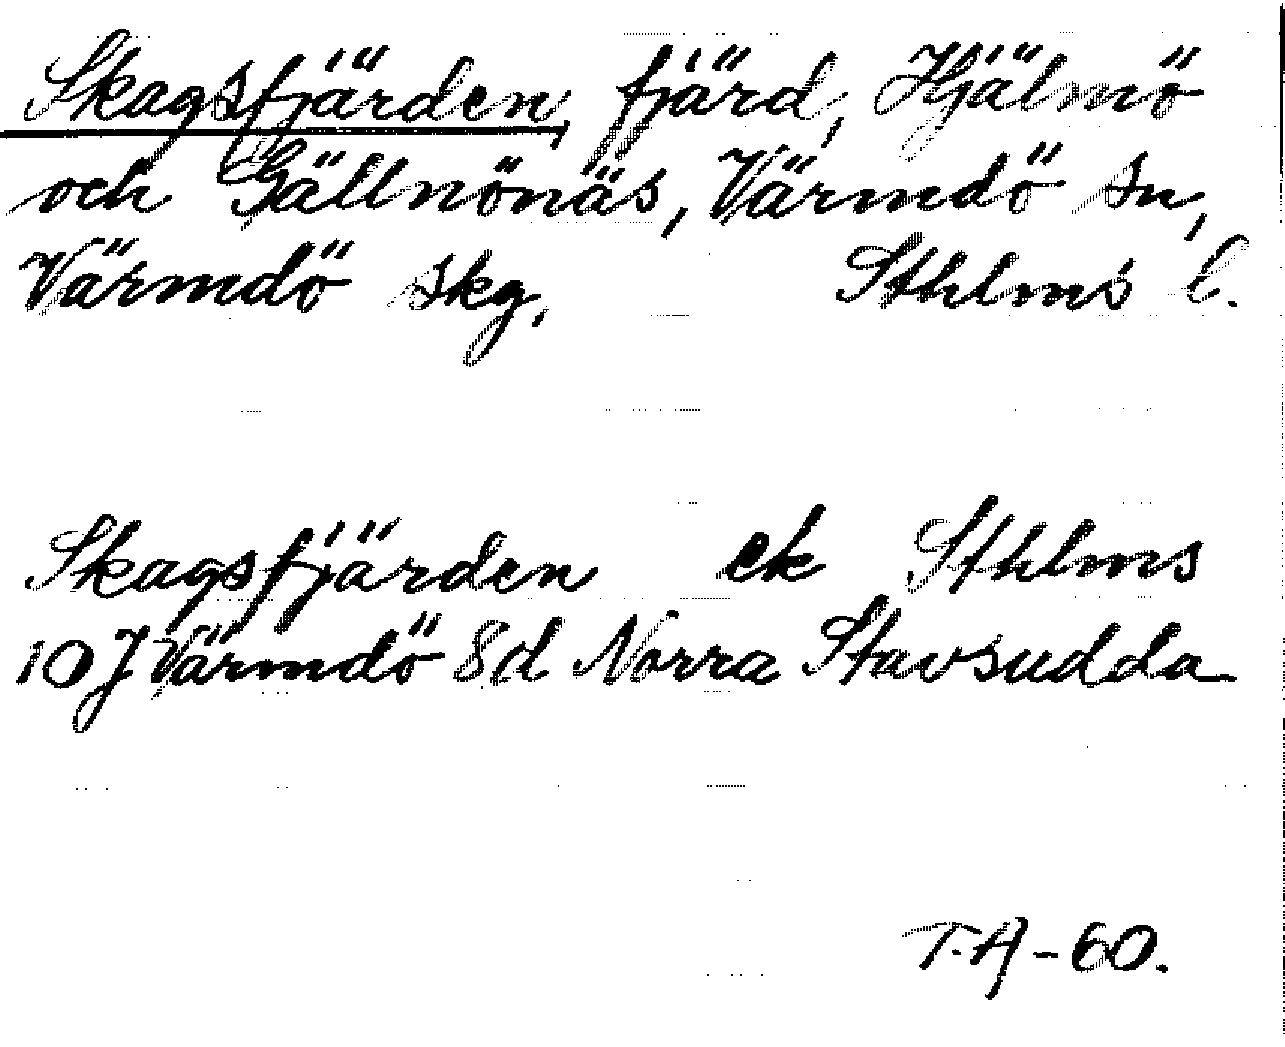 Skagsfjärden, fjärd, Hjälmö
och Gällnönäs, Värmdö sn,
Värmdö skg, Sthlms l.
Skagsfjärden ek Sthlms
10 J Värmdö 8d Norra Stavsudda
T.A-60.